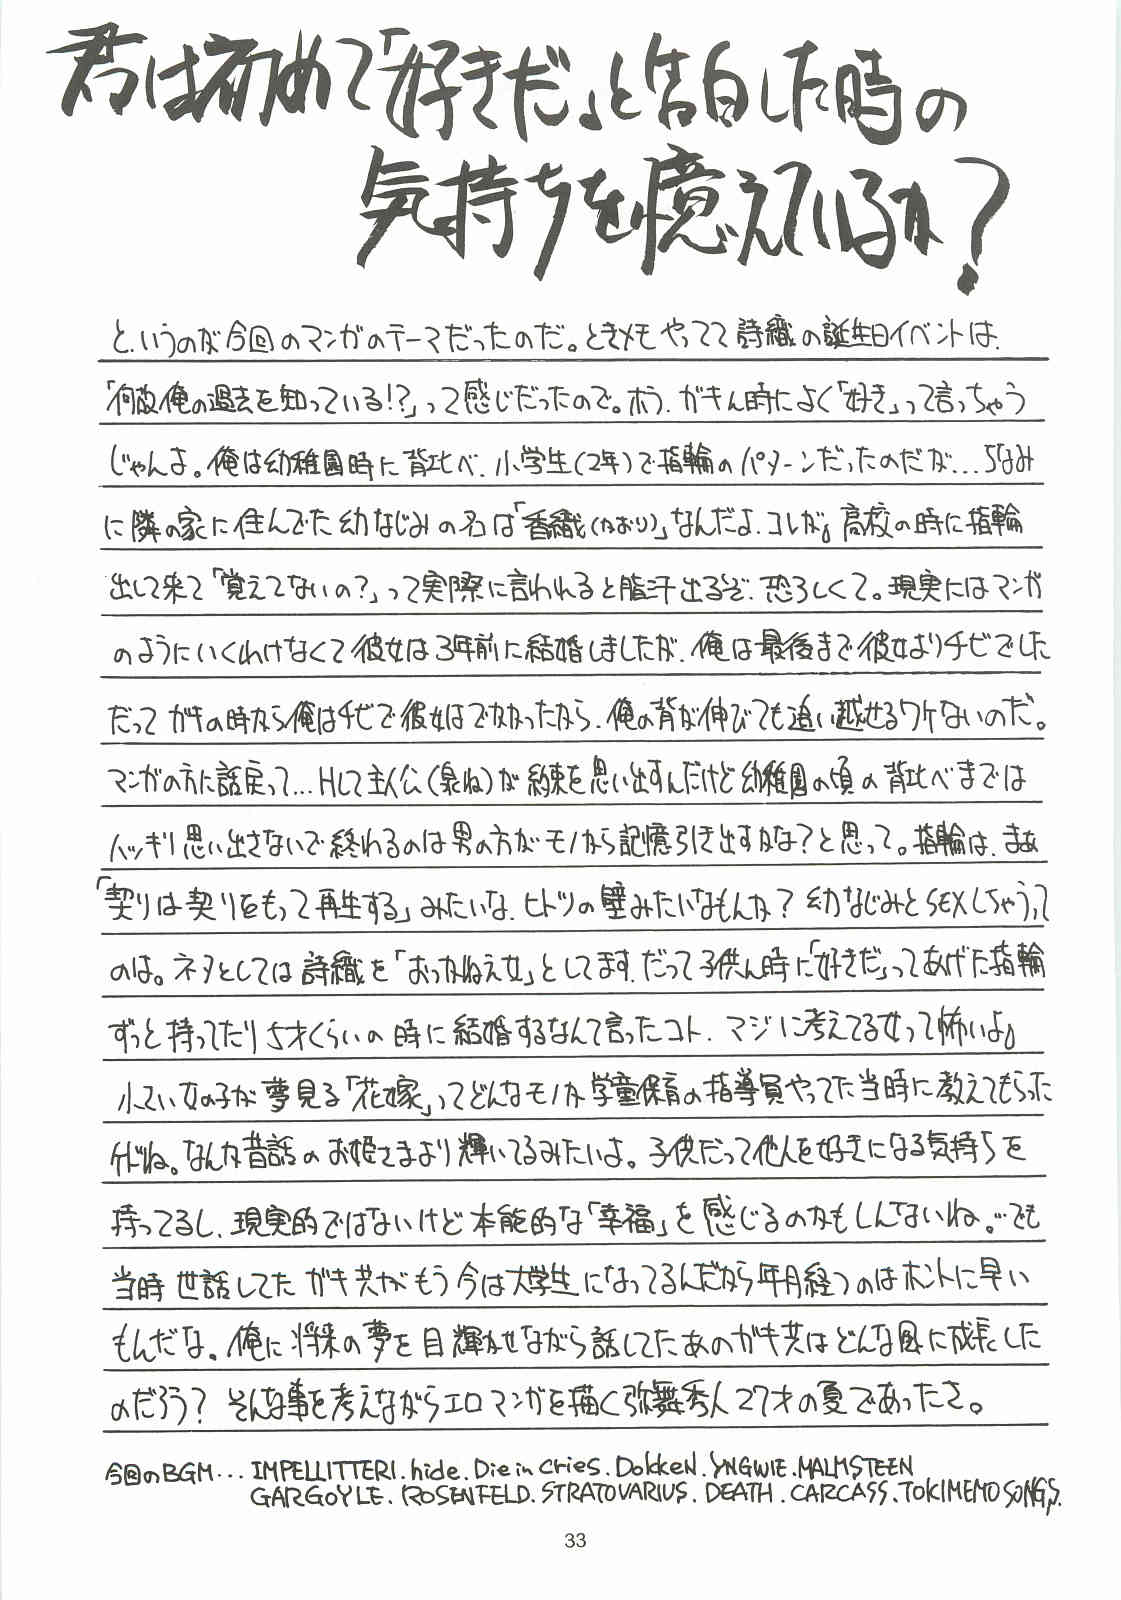 君は初めて「好きだ」と告白した時の
気持ちを憶えているか？
というのが今回のマンガのテーマだったのだ。ときメモやってて詩織の誕生日イベントは、
「何故俺の過去を知っている!?」って感じだったので。ホラ、ガキん時によく「好き」って言っちゃう
じゃんよ。俺は幼稚園時に背比べ、小学生(2年)で指輪のパターンだったのだが…ちなみ
に隣の家に住んでた幼なじみの名は「香織(かおり)」なんだよ、コレが。高校の時に指輪
出して来て「覚えてないの？」って実際に言われると脂汗出るぞ、恐ろしくて。現実にはマンガ
のようにいくわけなくて彼女は3年前に結婚しましたが、俺は最後まで彼女よりチビでした
だってガキの時から俺はチビで彼女はでかかったから、俺の背が伸びても追い越せるワケないのだ。
マンガの方に話戻って…Hして主人公(泉ね)が約束を思い出すんだけど幼稚園の頃の背比べまでは
ハッキリ思い出さないで終わるのは男の方がモノから記憶引き出すかな？と思って。指輪は、まぁ
「契りは契りをもって再生する」みたいな、ヒトツの壁みたいなもんか？幼なじみとSEXしちゃうって
のは。ネタとしては詩織を「おっかねえ女」としてます、だって子供ん時に「好きだ」ってあげた指輪
ずっと持ってたり5才くらいの時に結婚するなんて言ったコト、マジに考えてる女って怖いよ。
小さい女の子が夢見る「花嫁」ってどんなモノか学童保育の指導員やってた当時に教えてもらった
けどね。なんか昔話のお姫さまより輝いてるみたいよ。子供だって他人を好きになる気持ちを
持ってるし、現実的ではないけど本能的な「幸福」を感じるのかもしんないね。…でも
当時世話してたガキ共がもう今は大学生になってるんだから年月経つのはホントに早い
もんだな。俺に将来の夢を目輝かせながら話してたあのガキ共はどんな風に成長した
のだろう？そんな事を考えながらエロマンガを描く弥舞秀人27才の夏であったさ。
今回のBGM…IMPELLITTERI.hide.Die in Cries.DOKKEN.YNGWIE.MALMSTEEN
GARGOYLE.ROSENFELD.STRATOVARIUS.DEATH.CARCASS.TOKIMEMO SONGS.
33